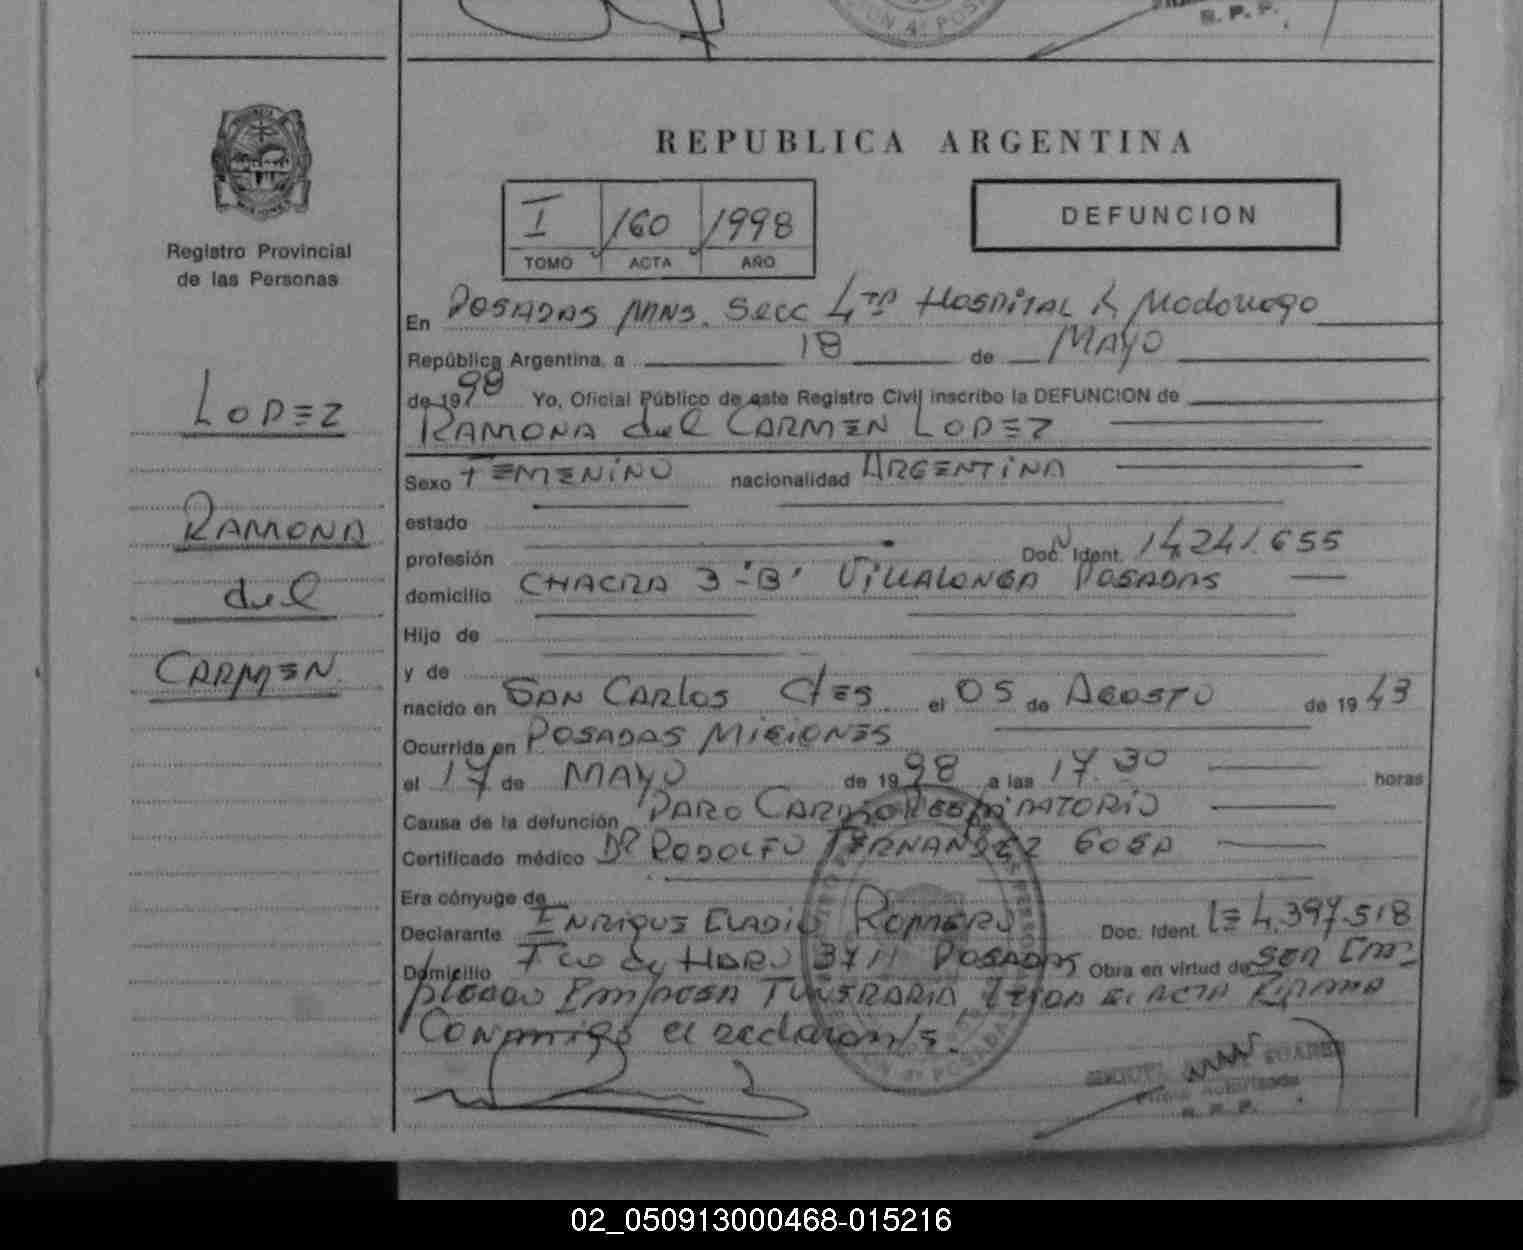 R. P. P.
REPUBLICA ARGENTINA
I / 160 / 1998
TOMO ACTA AÑO
DEFUNCION
Registro Provincial
de las Personas
LOPEZ
RAMONA
del
CARMEN
En POSADAS MNS. Secc 4TA HOSPITAL R Madariaga
República Argentina, a 18 de MAYO
de 1998 Yo, Oficial Público de este Registro Civil inscribo la DEFUNCION de
RAMONA del CARMEN LOPEZ
Sexo FEMENINO nacionalidad ARGENTINA
estado
profesión Doc. Ident. N 14.241.655
domicilio CHACRA 3 "B" VILLALONGA POSADAS
Hijo de
y de
nacido en SAN CARLOS CTES el 05 de AGOSTO de 1943
Ocurrida en POSADAS MISIONES
el 17 de MAYO de 1998 a las 17.30 horas
Causa de la defunción PARO CARDIORESPIRATORIO
Certificado médico Dr RODOLFO FERNANDEZ SOSA
Era cónyuge de
Declarante ENRIQUE ELADIO ROMERO Doc. Ident. LE 4.397.518
Domicilio Fco de HARO 3711 POSADAS Obra en virtud de SER EM-
pleado EMPRESA FUNERARIA Leida el ACTA FIRMA
Conmigo el declarante.
SUAREZ
Firma Autorizada
R. P. P.
02_050913000468-015216